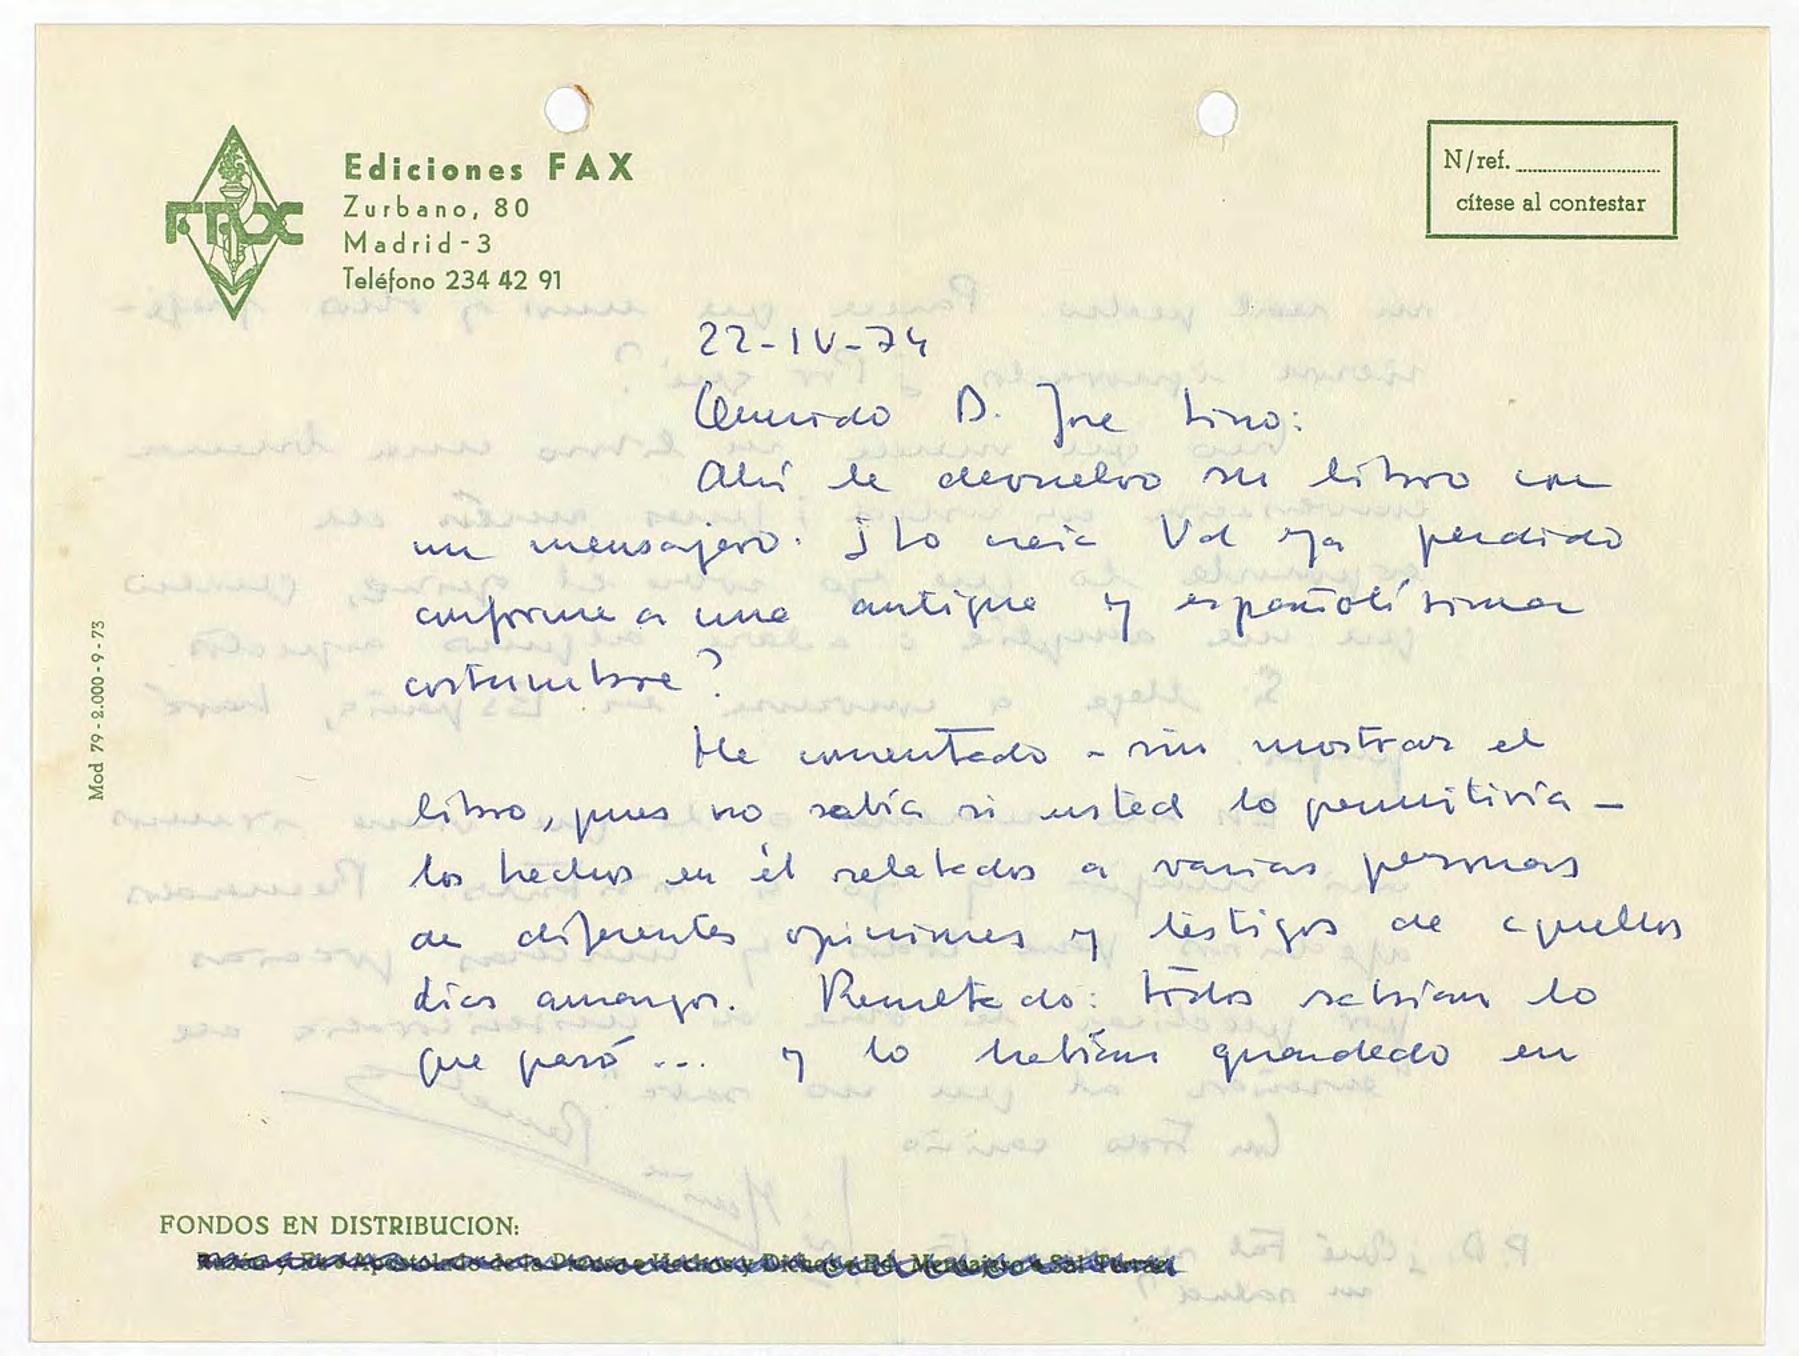 FAX
Ediciones FAX
Zurbano, 80
Madrid-3
Teléfono 234 42 91
N/ref.
cítese al contestar
22-IV-74
Querido D. Jose Lino:
Ahí le devuelvo su libro con
un mensajero. ¿Lo creía Vd ya perdido
conforme a una antigua y españolísima
costumbre?
He comentado - sin mostrar el
libro, pues no sabía si usted lo permitiría -
los hechos en él relatados a varias personas
de diferentes opiniones y testigos de aquellos
días amargos. Resultado: todos sabían lo
que pasó ... y lo habían guardado en
Mod 79 - 2.000 - 9 - 73
FONDOS EN DISTRIBUCION:
Razón y Fe • Apostolado de la Prensa • Hechos y Dichos • Ed. Mensajero • Sal Terrae